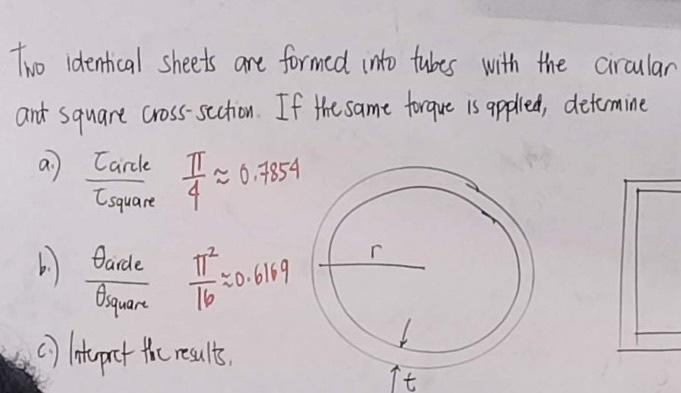 Two identical sheets are formed into tubes with the circular
and square cross-section. If the same torque is applied, determine
a.) τcircle / τsquare π/4 ≈ 0.7854
b.) θcircle / θsquare π²/16 ≈ 0.6169
c.) Interpret the results.
r
t